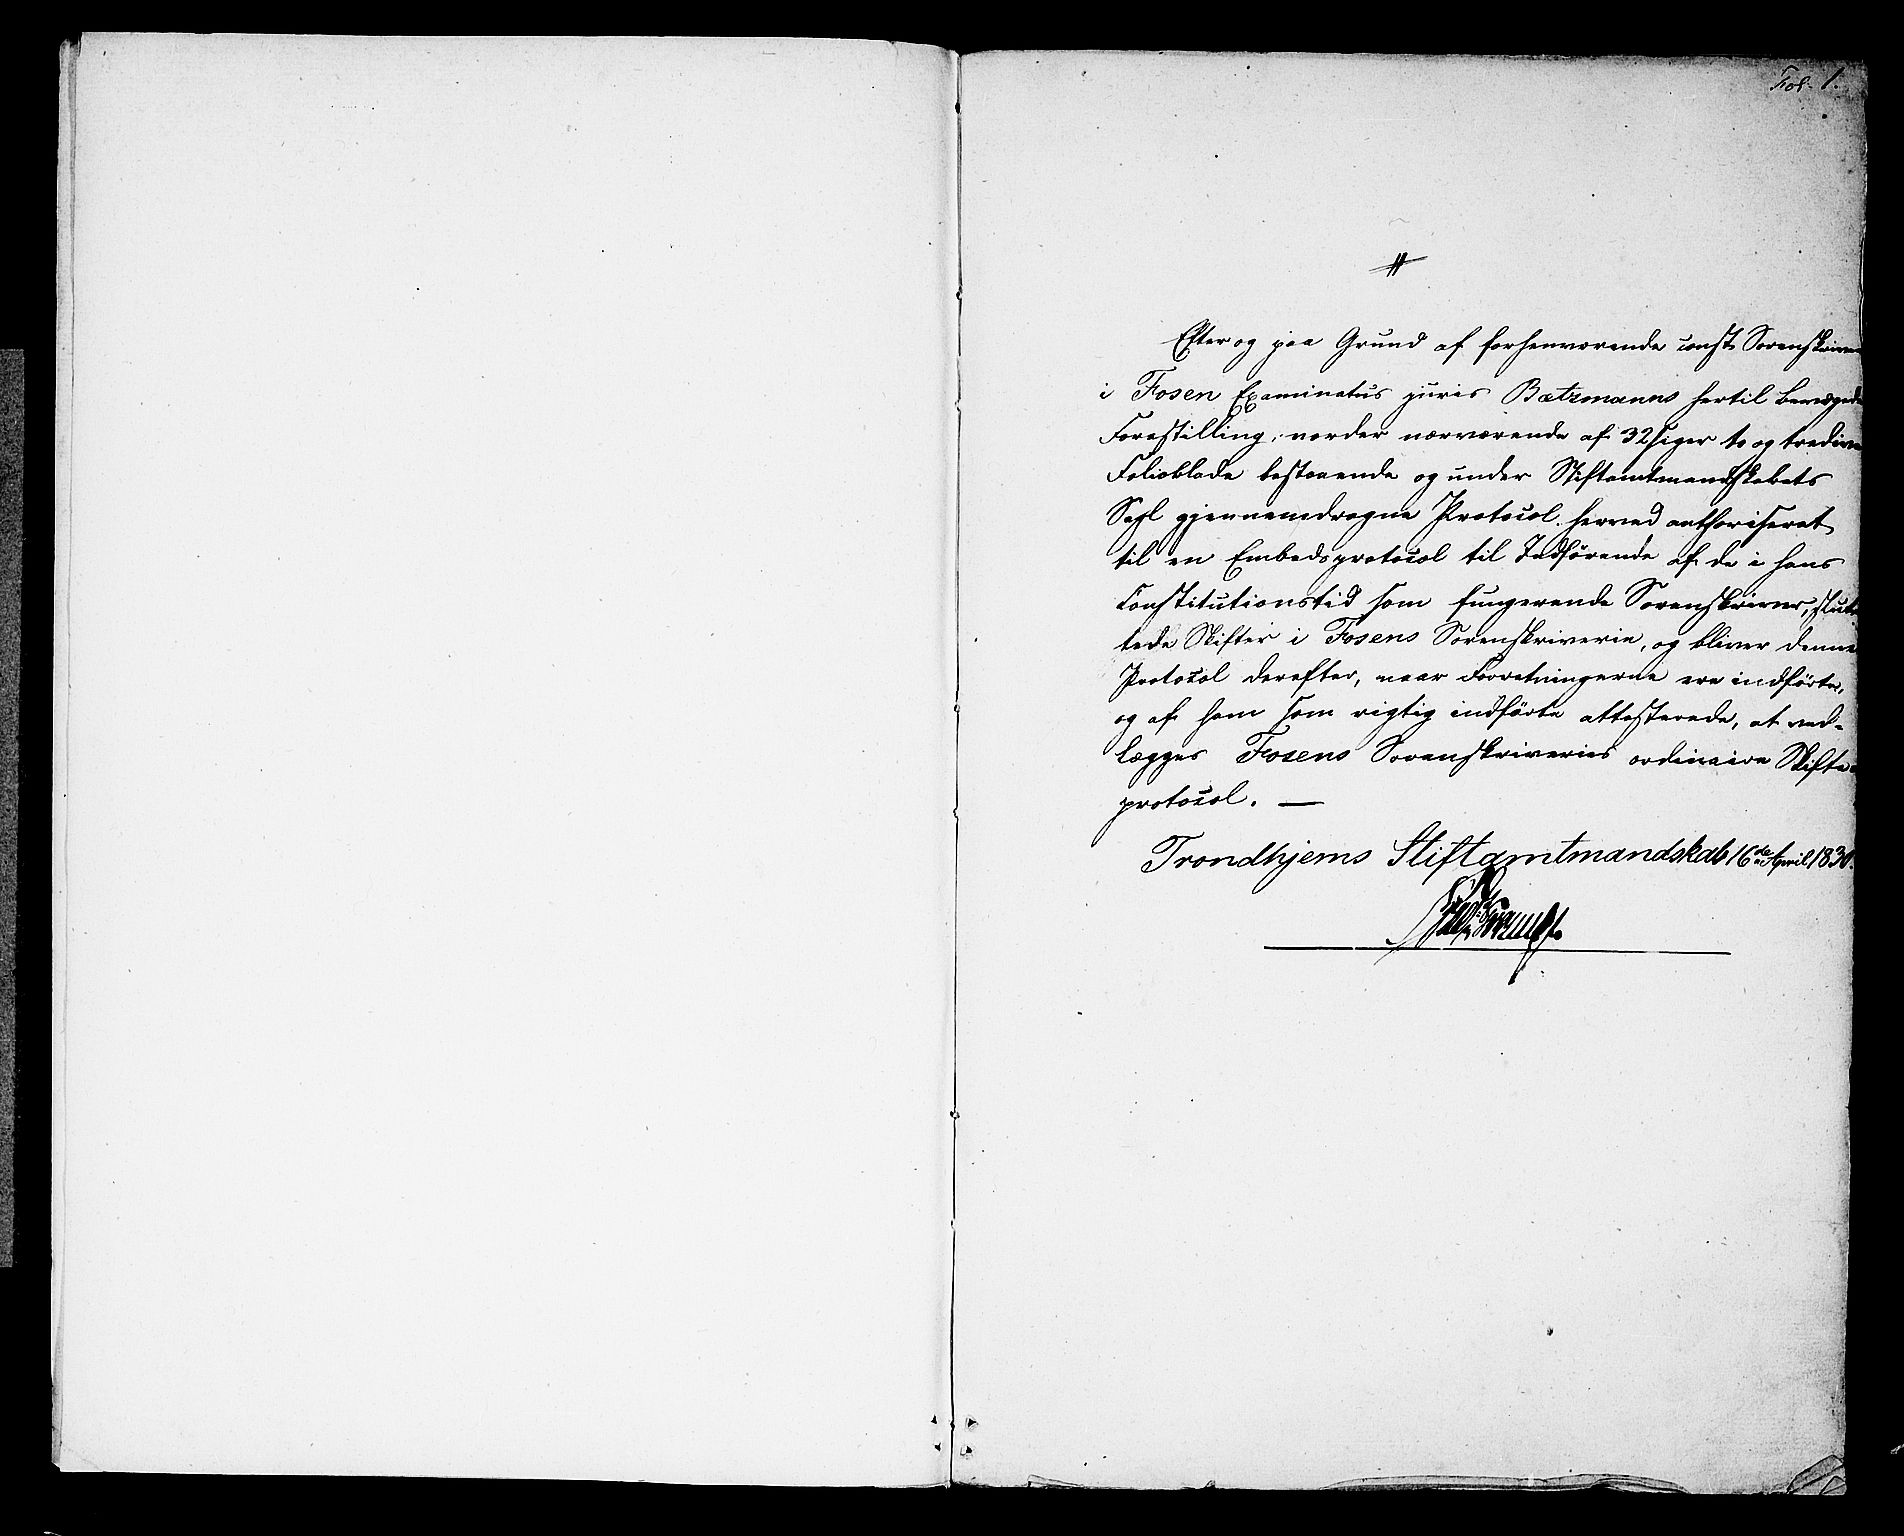 Fol. 1.
Efter og paa Grund af forhenværende const. Sorenskriver
i Fosen Examinatus juris Bætzmanns hertil bevægede
Forestilling, vorder nærværende af 32 siger to og tredive
Folioblade bestaaende og under Stiftamtmandskabets
Segl gjennemdragne Protocol herved authoriseret
til en Embedsprotocol til Indförende af de i hans
Constitutionstid som fungerende Sorenskriver, slut-
tede Skifter i Fosens Sorenskriverie, og bliver denne
Protocol derefter, naar Forretningerne ere indförte,
og af ham som rigtig indförte attesterede, at ved-
lægges Fosens Sorenskriveries ordinaire Skifte-
protocol. —
Trondhjems Stiftamtmandskab 16de April 1830.